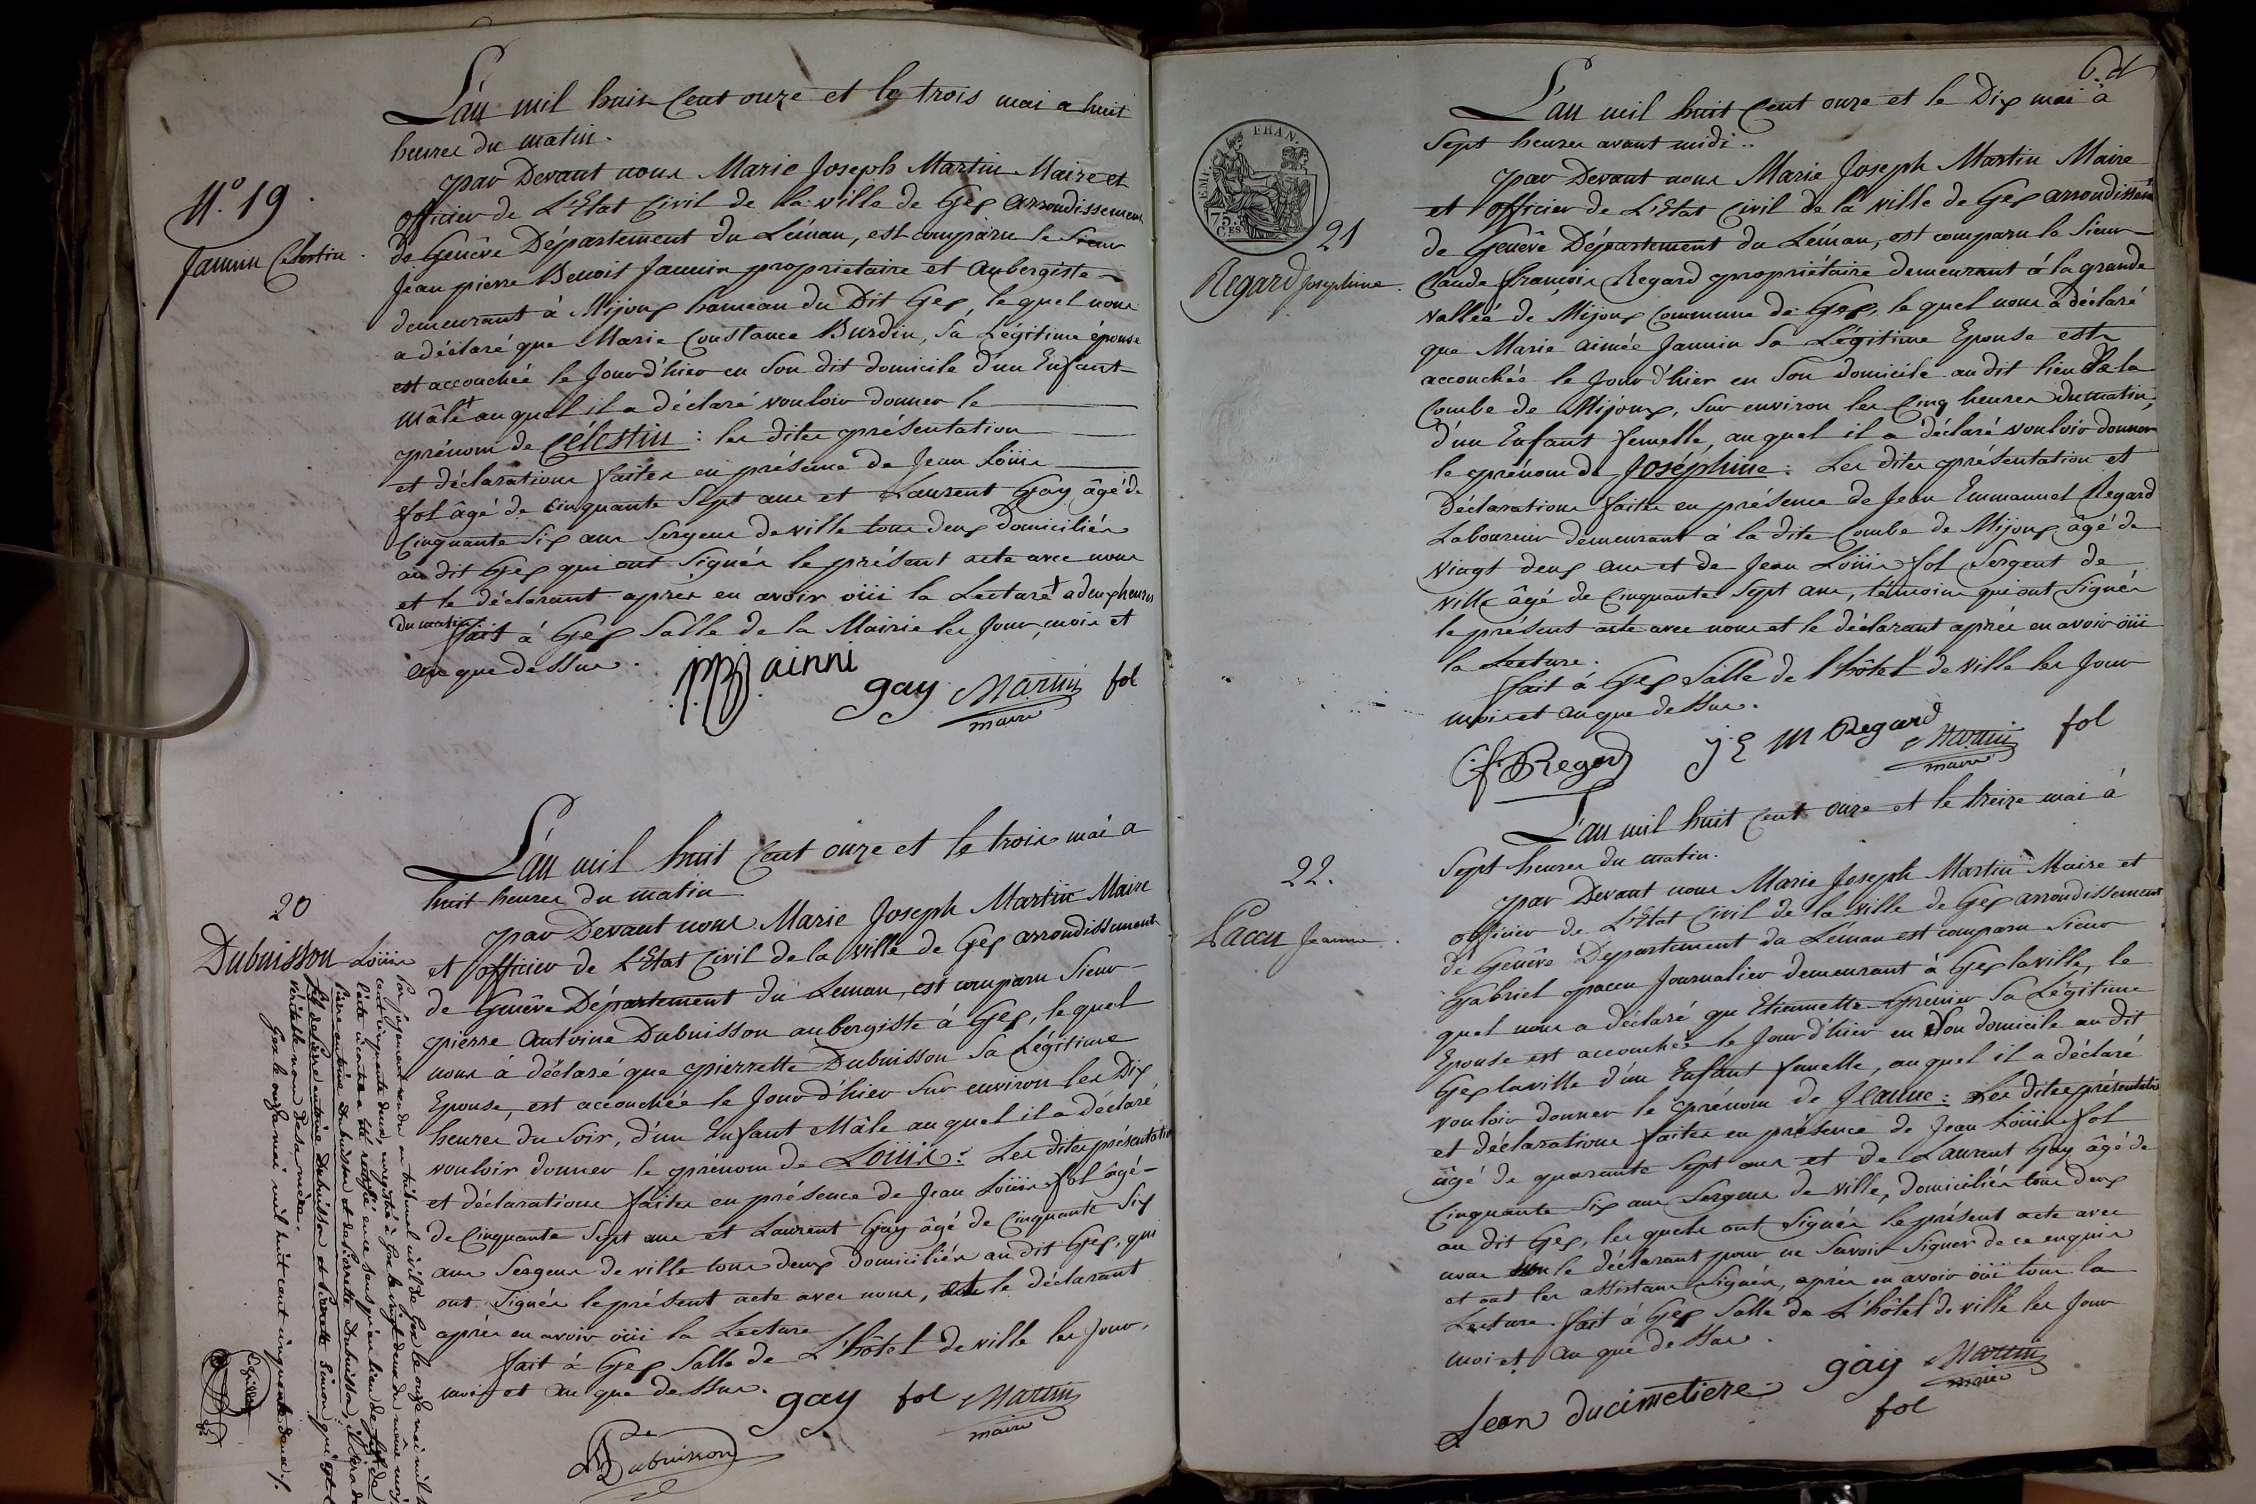 L'an mil huit Cent onze et le trois mai a huit
heures du matin.
par Devant nous Marie Joseph Martin Maire et
officier de L'Etat Civil de la ville de Gex arrondissement
de Genêve Département du Léman, est comparu le Sieur
Jean pierre Benoit Jannin proprietaire et Aubergiste
demeurant à Mijoux hameau du Dit Gex, le quel nous
a déclaré que Marie Constance Burdin, Sa Légitime épouse
est accouchée le Jour d'hier en Son dit domicile d'un Enfant
Mâle + au quel il a déclaré vouloir donner le
prénom de Célestin : les dites présentation
et déclarations faites en présence de Jean Loüis
fol âgé de cinquante Sept ans et Laurent Gay âgé de
Cinquante Six ans Sergens de ville tous deux domiciliés
au dit Gex qui ont Signés le présent acte avec nous
et le déclarant après en avoir oüi la Lecture + a deux heures
du matin
fait à Gex Salle de la Mairie les Jour, mois et
an que dessus.
N.º 19
Jannin Célestin
J.P.B. Jainni gay Martin fol
maire
L'an mil huit Cent onze et le trois mai a
huit heures du matin
par Devant nous Marie Joseph Martin Maire
et officier de L'Etat Civil de la ville de Gex arrondissement
de Genêve Département du Leman, est comparu Sieur
pierre Antoine Dubuisson aubergiste à Gex, le quel
nous à déclaré que pierrette Dubuisson Sa Légitime
Epouse, est accouchée le Jour d'hier Sur environ les Dix
heures du Soir, d'un Enfant Mâle au quel il a déclaré
vouloir donner le prénom de Loüis : Les dites présentation
et déclarations faites en présence de Jean Loüis fol âgé
de Cinquante Sept ans et Laurent Gay âgé de Cinquante Six
ans Sergens de ville tous deux domiciliés au dit Gex, qui
ont Signés le présent acte avec nous, et le déclarant
après en avoir oüi la Lecture
fait à Gex Salle de L'hôtel de ville les Jour,
mois et an que dessus.
20
Dubuisson Loüis
Par jugement rendu au tribunal civil de Gex le onze mai mil
cent cinquante deux, enregistré à Gex le vingt deux du même mois
l'acte ci contre a été rectifié en ce sens qu'au lieu de fils de
Pierre antoine Dubuisson et de Pierrette Dubuisson, il sera dit
fils de Pierre antoine Dubuisson et Pierrette Simon qui est le
véritable nom de sa mère.
Gex le onze mai mil huit cent cinquante deux.
gay fol Martin
maire
Dubuisson
6.
L'an mil huit Cent onze et le Dix mai à
Sept heures avant midi..
par Devant nous Marie Joseph Martin Maire
et officier de L'Etat Civil de la ville de Gex arrondissemt
de Genêve Département du Léman, est comparu le Sieur
Claude françois Regard propriétaire demeurant à la grande
vallée de Mijoux Commune de Gex, le quel nous a déclaré
que Marie aimée Jannin Sa Légitime Epouse est
accouchée le Jour d'hier en Son domicile au dit lieu De la
Combe de Mijoux, Sur environ les Cinq heures Du matin,
d'un Enfant femelle, au quel il a déclaré vouloir donner
le prénom de Joséphine : Les dites présentation et
Déclarations faites en présence de Jean Emmanuel Regard
Laboureur demeurant à la dite Combe de Mijoux âgé de
vingt deux ans et de Jean Loüis fol Sergent de
ville âgé de Cinquante Sept ans, témoins qui ont Signés
le présent acte avec nous et le déclarant après en avoir oüi
la Lecture.
fait à Gex Salle de l'hôtel de ville les Jour
mois et an que dessus.
FRAN.
75.
C.ES
21
Regard Joséphine
C.f. Regard J E M Regard Martin fol
maire
L'an mil huit Cent onze et le treize mai à
Sept heures du matin.
par Devant nous Marie Joseph Martin Maire et
officier de L'Etat Civil de la ville de Gex arrondissement
de Genêve Département du Léman est comparu Sieur
Gabriel paccu Journalier demeurant à Gex la ville, le
quel nous a déclaré que Etiennette Grenier Sa Légitime
Epouse est accouchée le Jour d'hier en Son domicile au dit
Gex la ville d'un Enfant femelle, au quel il a déclaré
vouloir donner le prénom de Jeanne : Les dites présentation
et déclarations faites en présence de Jean Loüis fol
âgé de quarante Sept ans et de Laurent Gay âgé de
Cinquante Six ans Sergens de ville, domiciliés tous deux
au dit Gex, les quels ont Signés le présent acte avec
nous le déclarant pour ne Savoir Signer de ce enquis
et ont les assistans Signés, après en avoir oüi tous la
Lecture. fait à Gex Salle de L'hôtel de ville les Jour
mois et an que dessus.
22.
Paccu Jeanne
gay Martin
maire
Jean ducimetiere fol